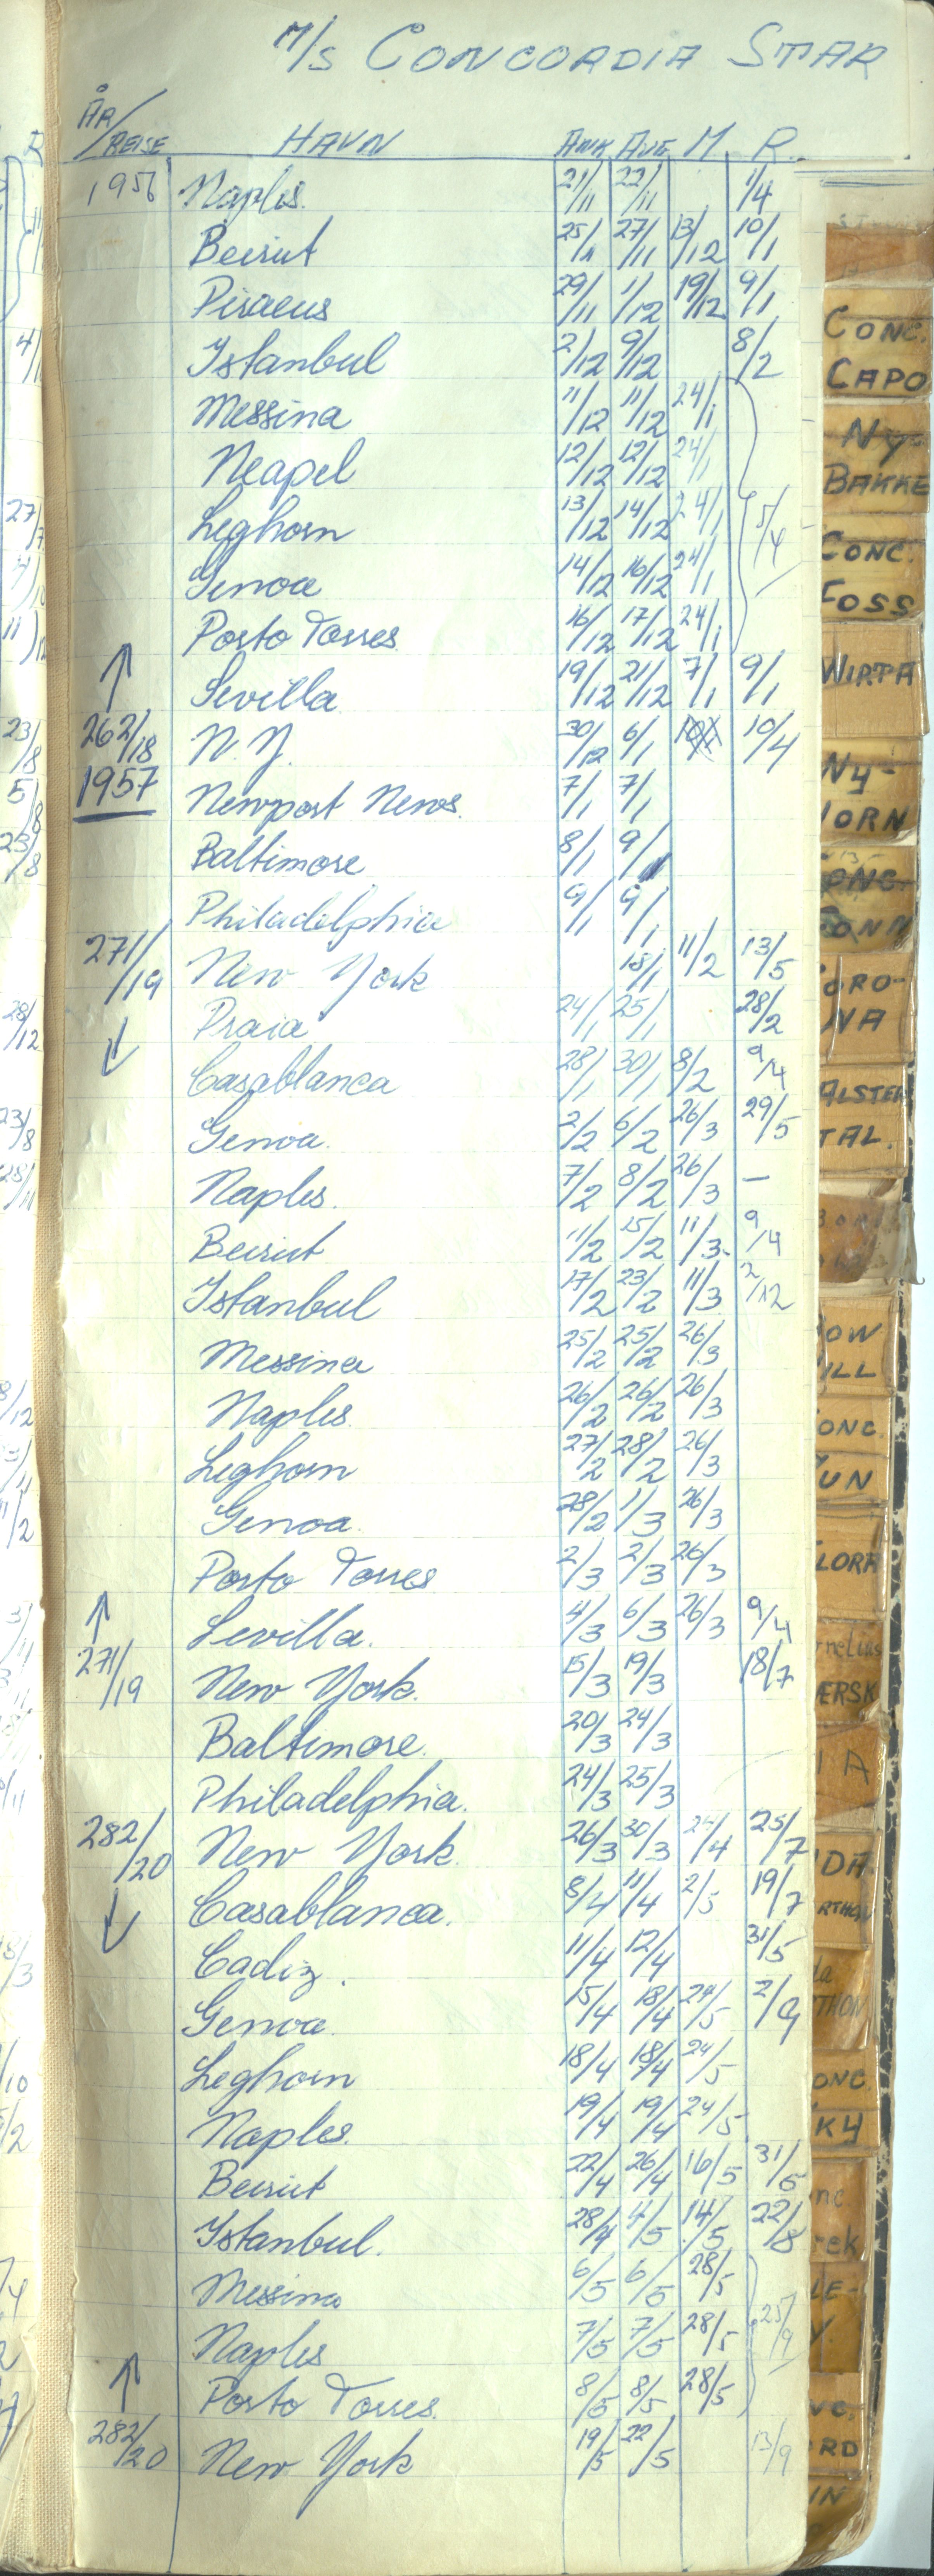 M/S CONCORDIA STAR
ÅR/REISE HAVN ANK AVG. M. R.
1956 Naples. 21/11 22/11 1/4
Beirut 25/11 27/11 13/12 10/1
Piraeus 29/11 1/12 19/12 9/1
Istanbul 2/12 9/12 8/2
Messina 11/12 11/12 24/1
Neapel 12/12 12/12 24/1
Leghorn 13/12 14/12 24/1 5/4
Genoa 14/12 16/12 24/1
Porto Torres 16/12 17/12 24/1
↑ Sevilla 19/12 21/12 7/1 9/1
262/18 N.Y. 30/12 6/1 10/4
1957 Newport News. 7/1 7/1
Baltimore 8/1 9/1
Philadelphia 9/1 9/1
271/19 New York 18/1 11/2 13/5
Praia 24/1 25/1 28/2
↓ Casablanca 28/1 30/1 8/2 9/4
Genoa. 2/2 6/2 26/3 29/5
Naples. 7/2 8/2 26/3 —
Beirut 11/2 15/2 11/3- 9/4
Istanbul 17/2 23/2 11/3 2/12
Messina 25/2 25/2 26/3
Naples 26/2 26/2 26/3
Leghorn 27/2 28/2 26/3
Genoa 28/2 1/3 26/3
Porto Torres 2/3 2/3 26/3
↑ Sevilla. 4/3 6/3 26/3 9/4
271/19 New York. 15/3 19/3 18/7
Baltimore. 20/3 24/3
Philadelphia. 24/3 25/3
282/20 New York. 26/3 30/3 24/4 25/7
↓ Casablanca. 8/4 11/4 2/5 19/7
Cadiz. 11/4 12/4 31/5
Genoa. 15/4 18/4 24/5 2/9
Leghorn 18/4 18/4 24/5
Naples. 19/4 19/4 24/5
Beirut 22/4 26/4 16/5 31/5
Istanbul. 28/4 4/5 14/5 22/8
Messina 6/5 6/5 28/5
Naples 7/5 7/5 28/5 25/9
↑ Porto Torres. 8/5 8/5 28/5
282/20 New York 19/5 22/5 13/9
CONC.
CAPO
NY-
BAKKE
CONC.
FOSS
WIRTA
NY-
ORN
ORO-
NA
ALSTER
TAL.
OW
ILL
ONC.
LORA
rnelius
ÆRSK
ONC.
KY
RD